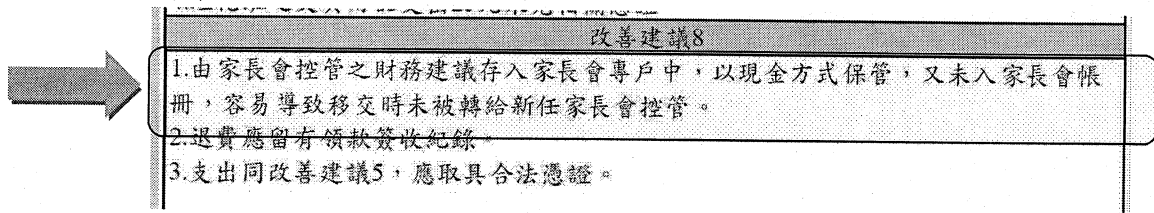 改善建議8
1.由家長會控管之財務建議存入家長會專戶中，以現金方式保管，又未入家長會帳
冊，容易導致移交時未被轉給新任家長會控管。
2.退費應留有領款簽收紀錄。
3.支出同改善建議5，應取具合法憑證。